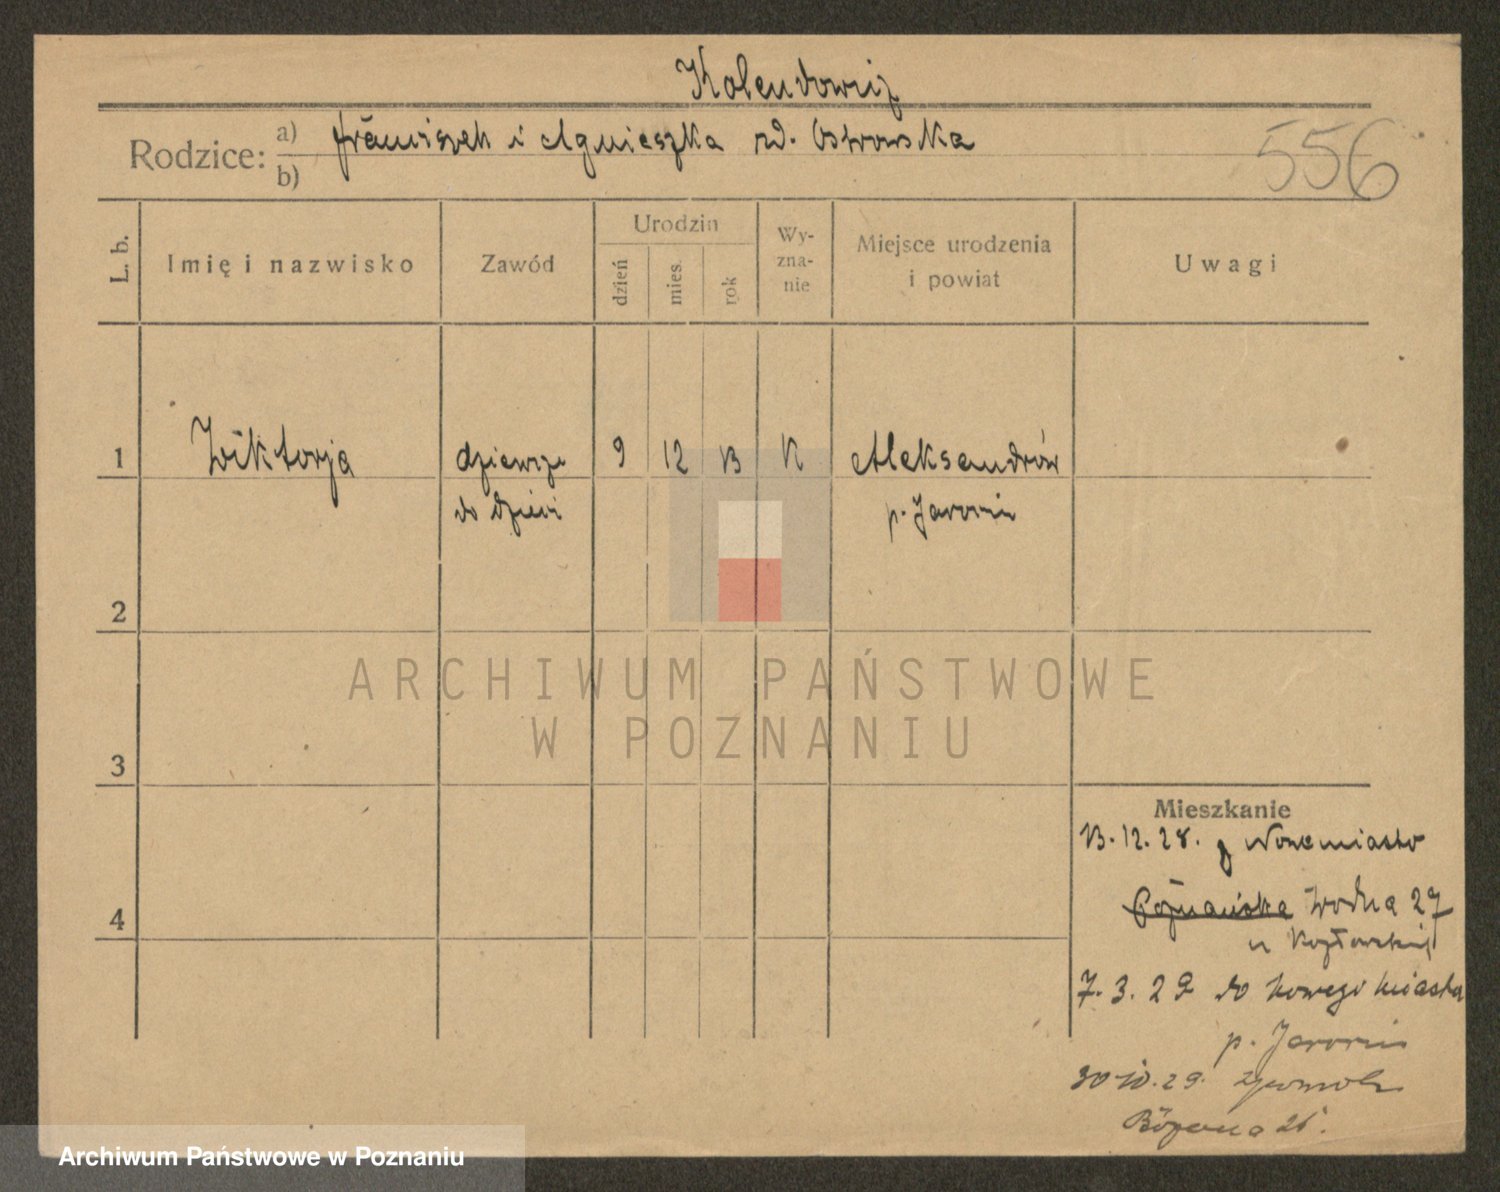 Kolendowicz
Rodzice: a) Franciszek i Agnieszka zd. Ostrowska
b)
556
L. b.
Imię i nazwisko
Zawód
Urodzin
dzień
mies.
rok
Wy-
zna-
nie
Miejsce urodzenia
i powiat
Uwagi
1 Wiktorja dziewczę 9 12 13 K Aleksandrów
do dzieci p. Jarocin
2
3
4
ARCHIWUM PAŃSTWOWE
W POZNANIU
Mieszkanie
13.12.28. z Novemiasto
Poznańska Wodna 27
u Kozłowskiej
7.3.29 do Nowego Miasta
p. Jarocin
30.10.29.
26.
Archiwum Państwowe w Poznaniu